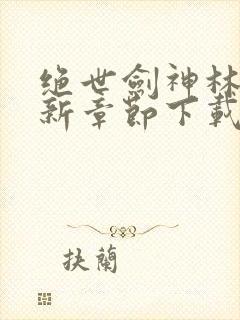 绝世劍神林
新章節下載
抉蘭